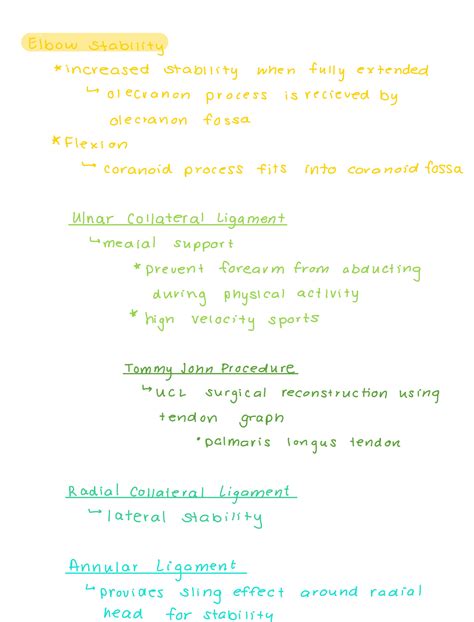 Elbow Stability
* increased stability when fully extended
↳ olecranon process is recieved by
olecranon fossa
* Flexion
↳ coranoid process fits into coranoid fossa
Ulnar Collateral Ligament
↳ medial support
* prevent forearm from abducting
during physical activity
* high velocity sports
Tommy John Procedure
↳ UCL surgical reconstruction using
tendon graph
* palmaris longus tendon
Radial Collateral Ligament
↳ lateral stability
Annular Ligament
↳ provides sling effect around radial
head for stability